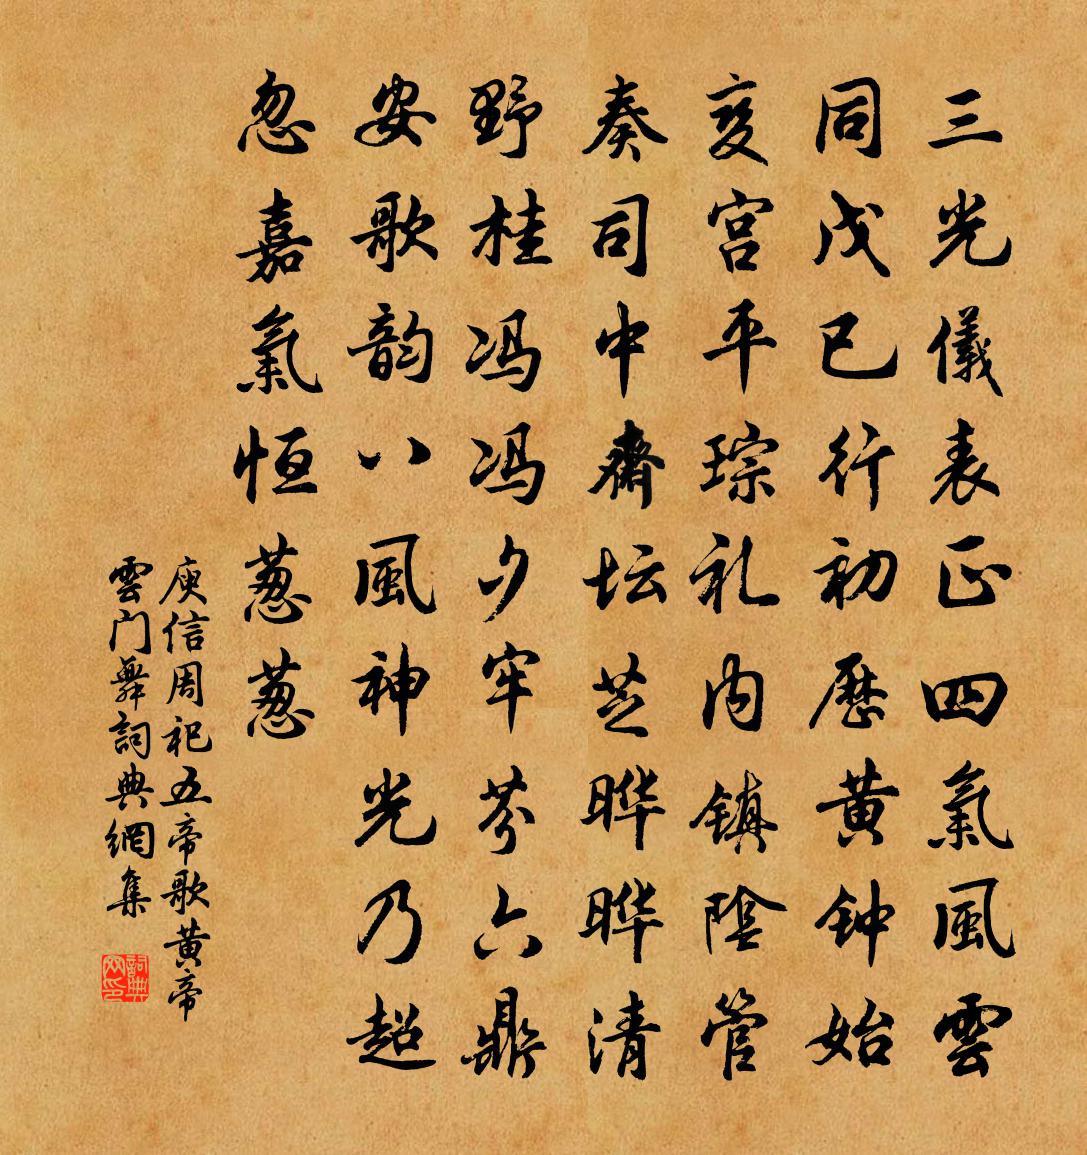 三光儀表正四氣風雲
同戊己行初歷黄钟始
变宫平琮礼内镇陰管
奏司中齋坛芝晔晔清
野桂冯冯夕牢芬六鼎
安歌韵八風神光乃超
忽嘉氣恒葱葱
庾信周祀五帝歌黄帝
雲门舞詞典網集
詞典网印